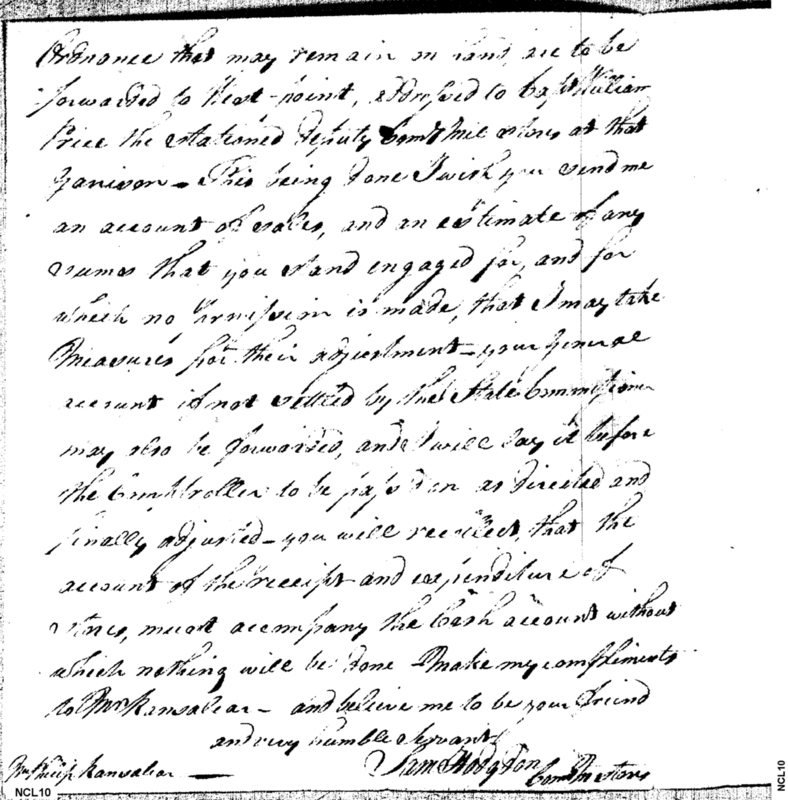 Ordnance that may remain on hand, are to be
forwarded to West-point, addressed to Capt William
Price the stationed deputy Comy Mil Stores at that
Garrison – This being done I wish you send me
an account of sales, and an estimate of any
sums that you stand engaged for, and for
which no provission is made, that I may take
Measures for their adjustment – your general
account if not settled by the State Commissioner
may also be forwarded, and I will lay it before
the Comptroller to be pass'd on as directed and
finally adjusted – you will recollect, that the
account of the receipt and expenditure of
stores, must accompany the Cash account without
which nothing will be done – Make my compliments
to Mrs Ransalear – and believe me to be your friend
and very humble Servant
Saml Hodgdon
Mr Philip Ransalear — Com M Stores
NCL10
NCL10